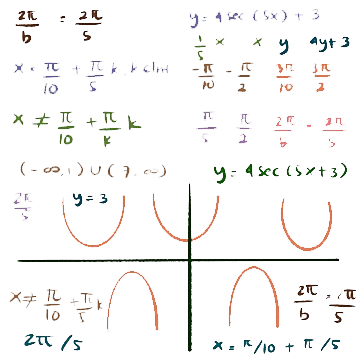 2π/b = 2π/5
y = 4 sec (5x) + 3
1/5 x x y 4y+3
x = π/10 + π/5 k, k
-π/10 -π/2 3π/10 3π/2
x ≠ π/10 + π/k k
π/5 π/2 2π/b = 2π/5
(-∞, 1) ∪ (7, ∞)
y = 4 sec (5x + 3)
2π/5
y = 3
x ≠ π/10 + π/5 k
2π/b = π/5
2π/5
x = π/10 + π/5